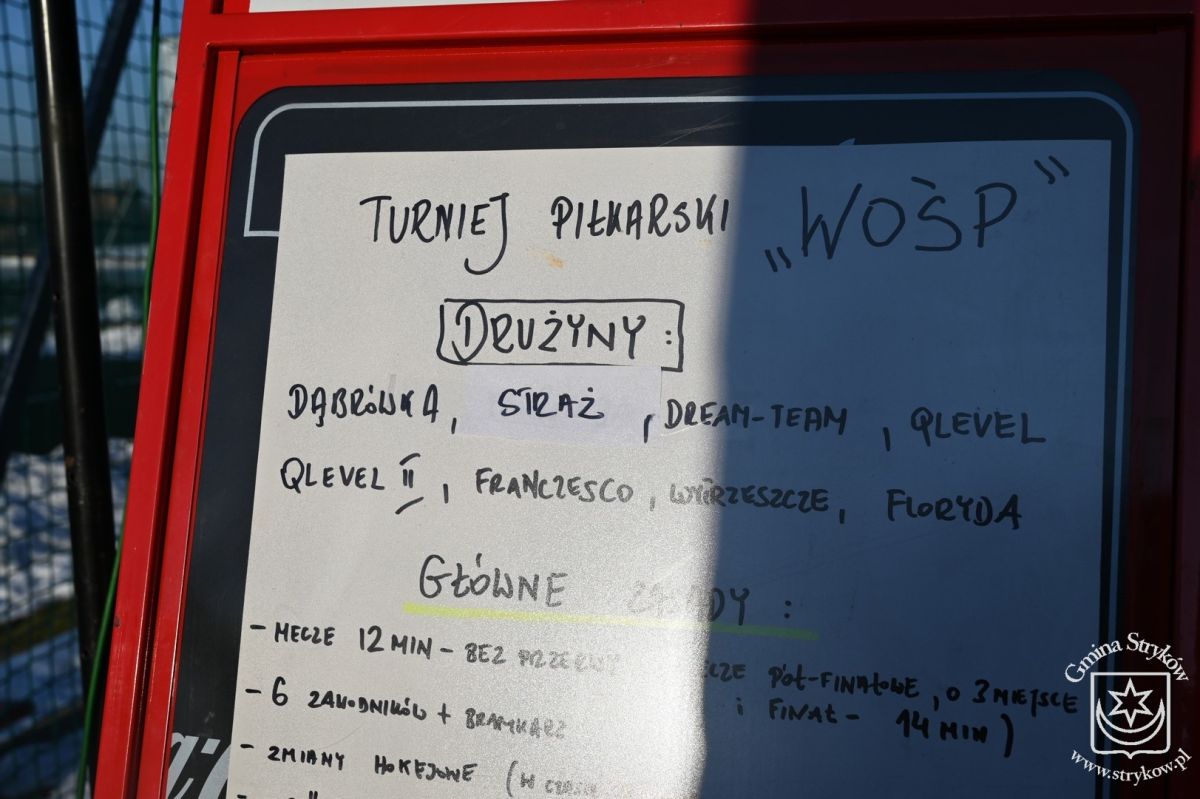 TURNIEJ PIŁKARSKI „WOŚP”
DRUŻYNY:
DĄBRÓWKA, STRAŻ, DREAM-TEAM, QLEVEL
QLEVEL II, FRANCZESCO, WYTRZESZCZE, FLORYDA
GŁÓWNE ZASADY:
- MECZE 12 MIN - BEZ PRZERWY PÓŁ-FINAŁOWE, O 3 MIEJSCE
i FINAŁ - 14 MIN)
- 6 ZAWODNIKÓW + BRAMKARZ
- ZMIANY HOKEJOWE (W
Gmina Stryków
www.strykow.pl